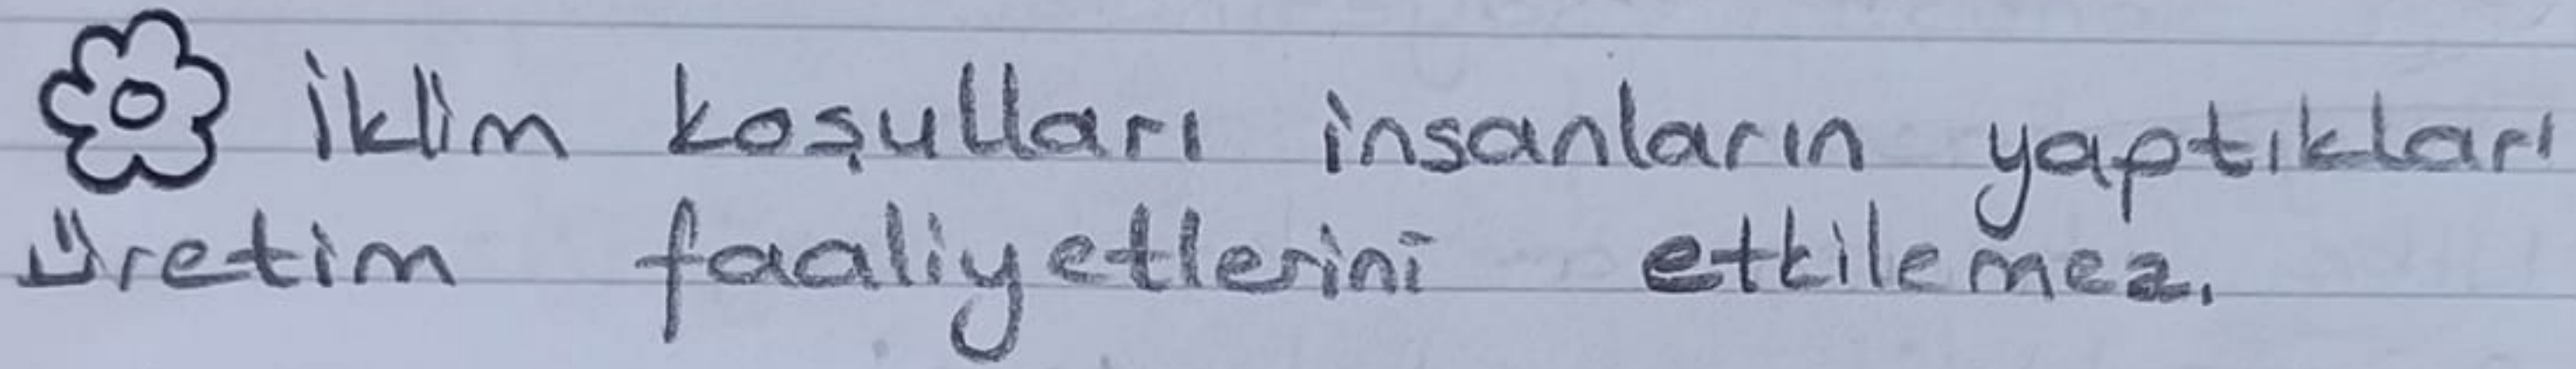 İklim koşulları insanların yaptıkları
üretim faaliyetlerini etkilemez.